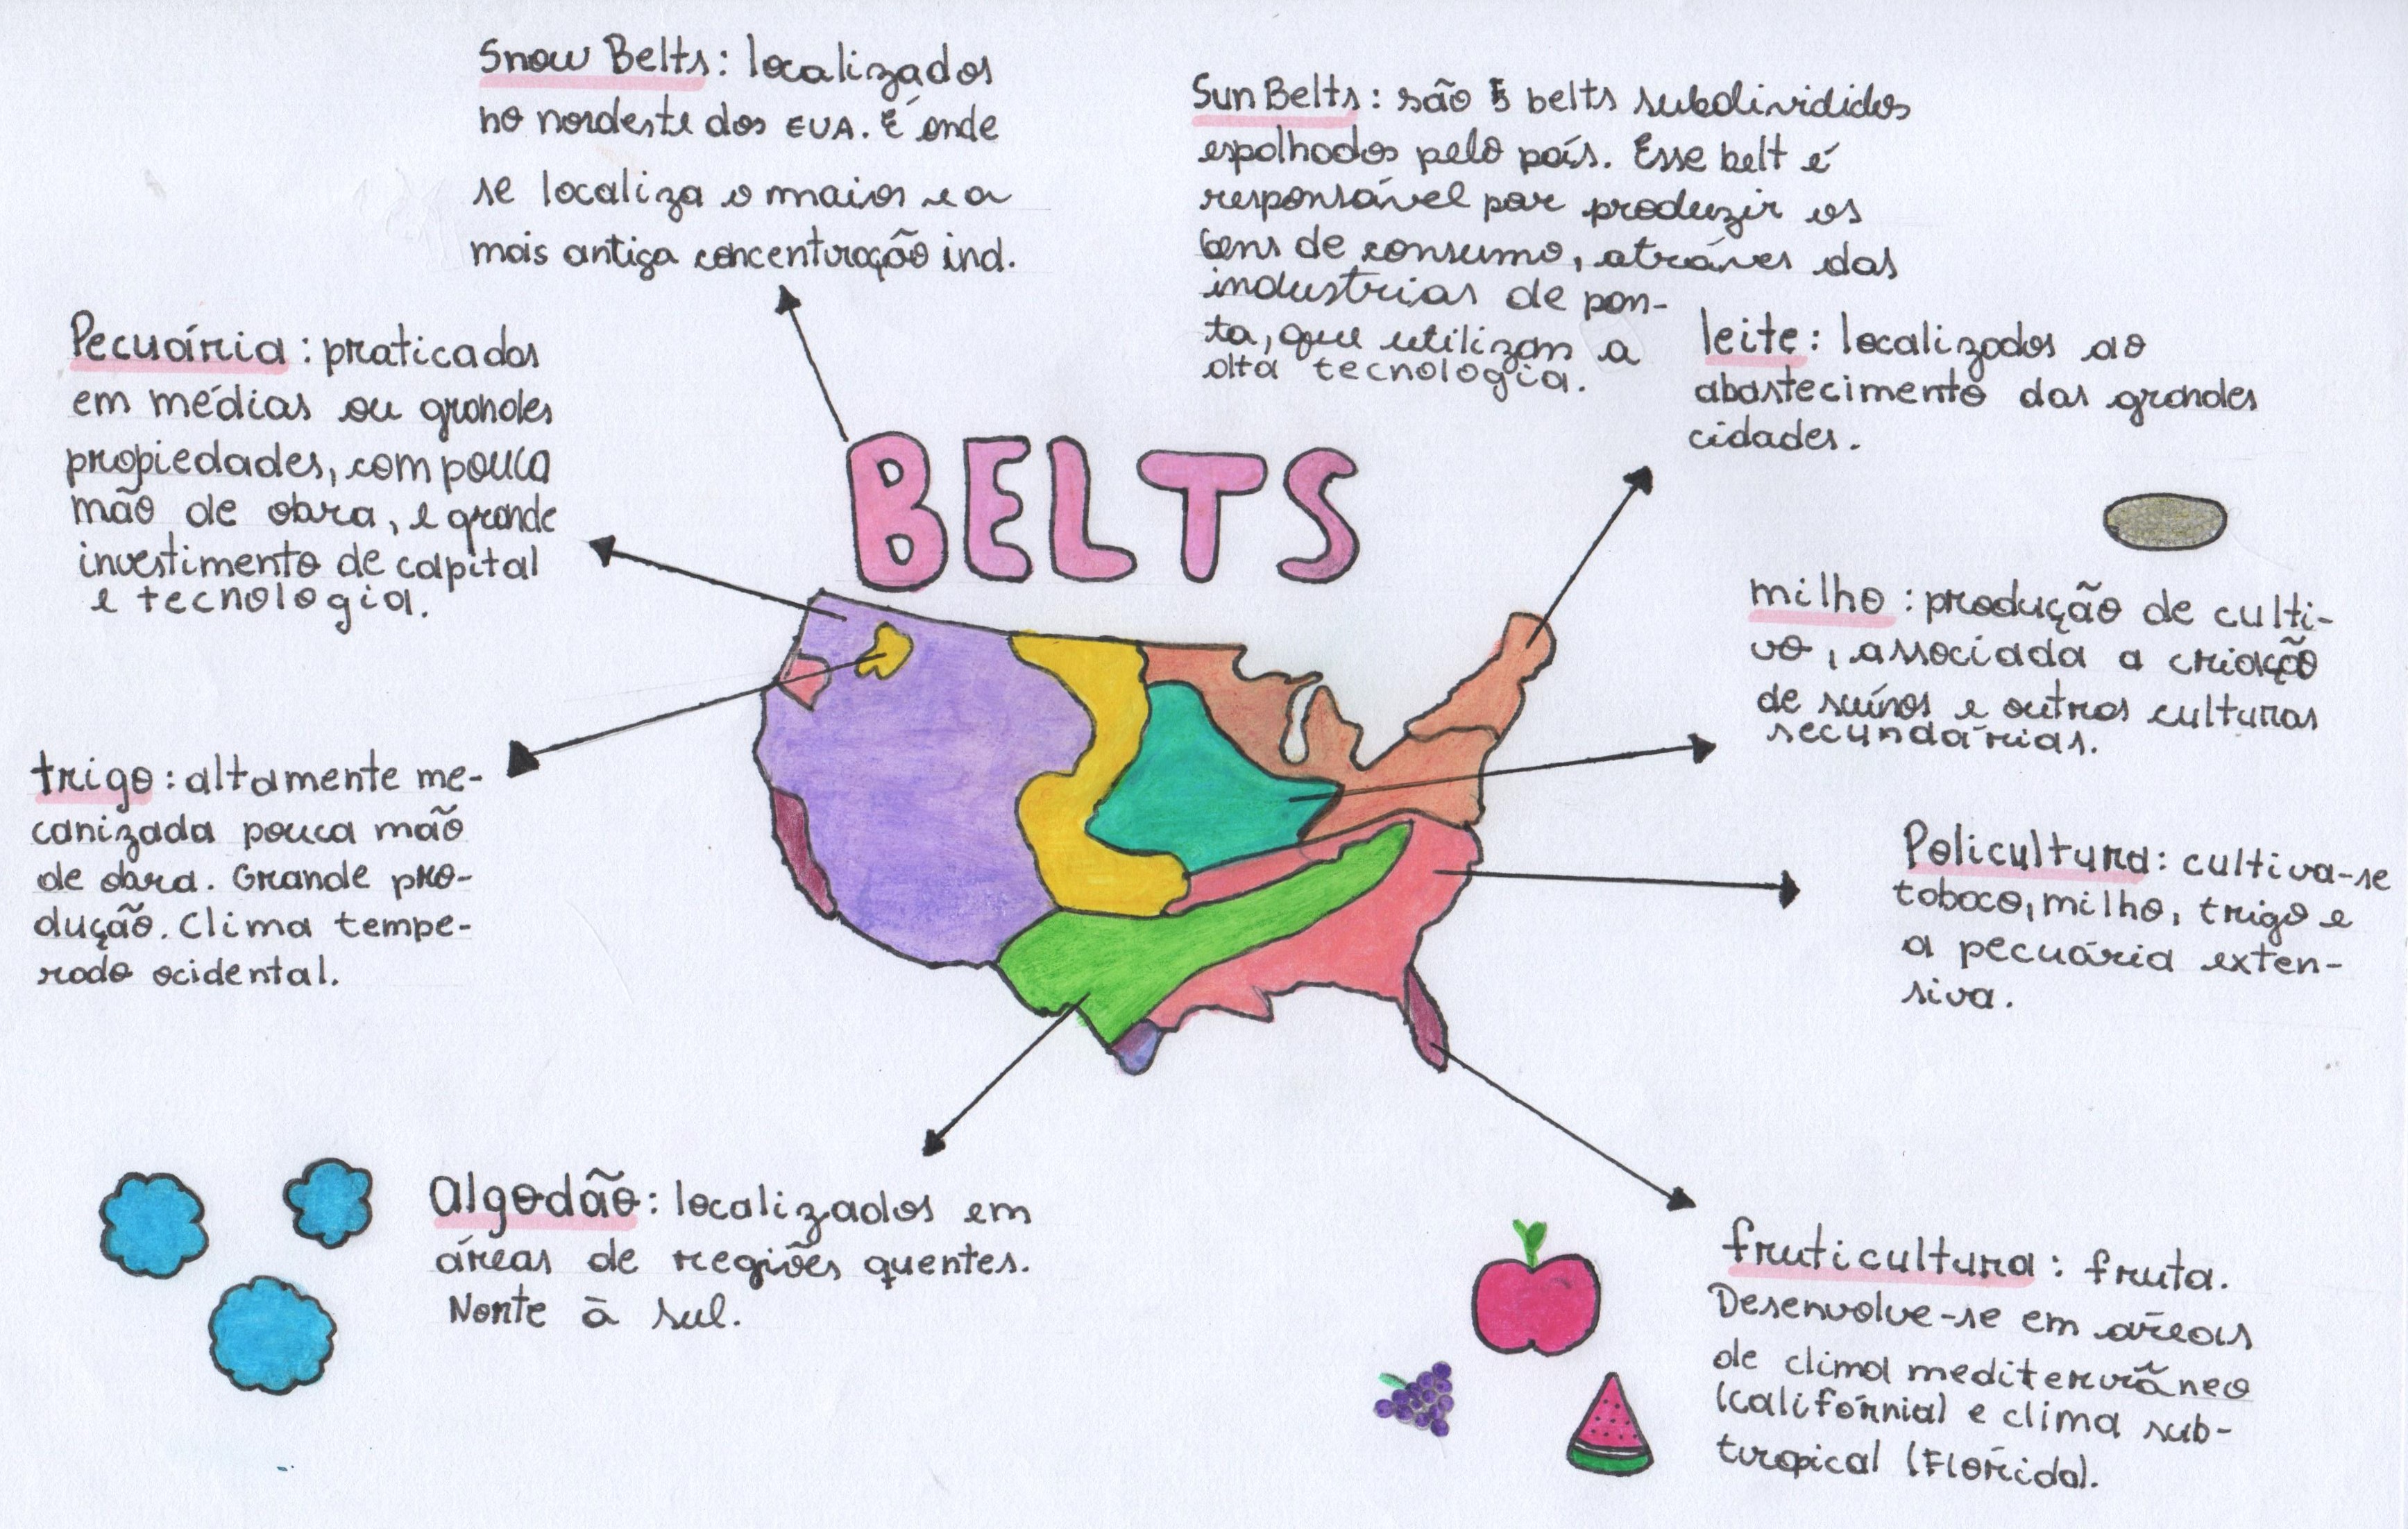 Snow Belts: localizados
no nordeste dos EUA. É onde
se localiza o maior e a
mais antiga concentração ind.
Sun Belts: são 5 belts subdivididos
espalhados pelo país. Esse belt é
responsável por produzir os
bens de consumo, atráves das
industrias de pon-
ta, que utilizam a
alta tecnologia.
Pecuária: praticadas
em médias ou grandes
propiedades, com pouca
mão de obra, e grande
investimento de capital
e tecnologia.
leite: localizados ao
abastecimento das grandes
cidades.
BELTS
milho: produção de culti-
vo, associada a criação
de suínos e outras culturas
secundárias.
trigo: altamente me-
canizada pouca mão
de obra. Grande pro-
dução. Clima tempe-
rado ocidental.
Policultura: cultiva-se
tabaco, milho, trigo e
a pecuária exten-
siva.
algodão: localizados em
áreas de regiões quentes.
Norte à sul.
fruticultura: fruta.
Desenvolve-se em áreas
de clima mediterrâneo
(califórnia) e clima sub-
tropical (Flórida).